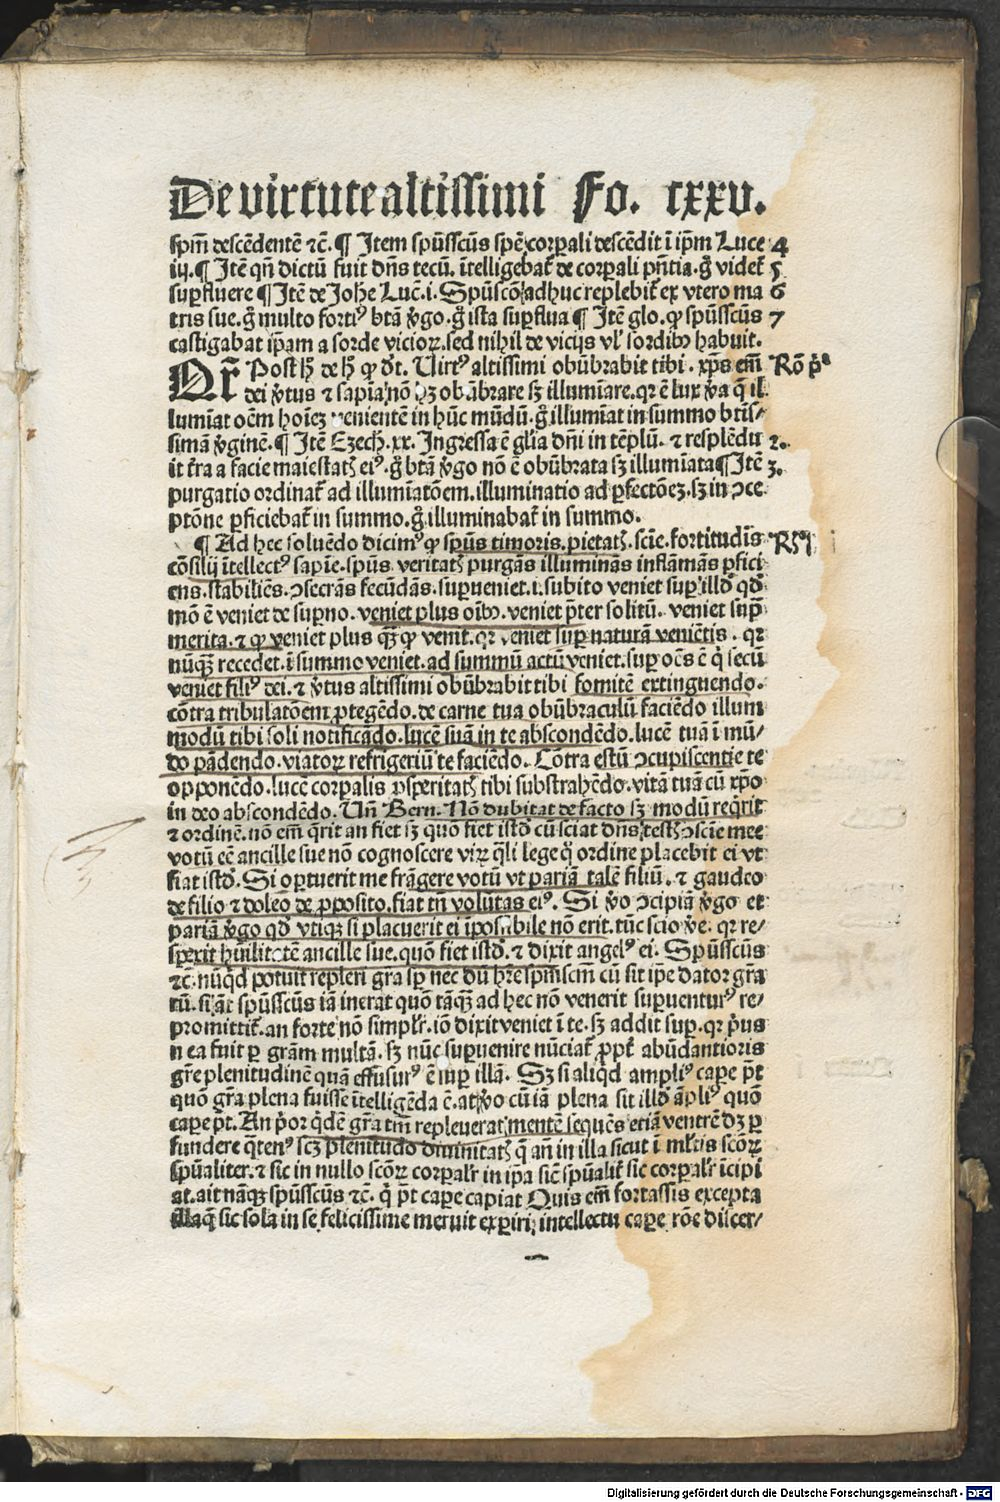 De virtute altissimi Fo. cxxv.
spm̄ descēdentē ⁊c̄. ¶ Item spūsscūs spē corꝑali descēdit ī ip̄m Luce 4
iij. ¶ Itē qn̄ dictū fuit dn̄s tecū. ītelligebat̄ de corꝑali pn̄tia. g̊ videt̄ 5
suꝑfluere ¶ Itē de Joh̄e Luc̄. i. Spūscō adhuc replebit̄ ex vtero ma 6
tris sue. g̊ multo fortiꝰ btā v̊go. g̊ ista suꝑflua ¶ Itē glo. ꝙ spūsscūs 7
castigabat ip̄am a sorde vicioꝝ. sed nihil de vicijs vl̓ sordibꝰ habuit.
Qr̄ Post h̄ de h̄ ꝙ d̄t. Uirtꝰ altissimi obūbrabit tibi. xp̄s em̄ Rō p̊ª
dei v̊tus ⁊ sapīa nō hꝫ obūbrare sꝫ illumīare. qr ē lux v̊a q̄ il
lumīat oēm hoīeꝫ venientē in hūc mūdū. g̊ illumīat in summo btīs⸗
simā v̊ginē. ¶ Itē Ezech̄. xx. Ingressa ē gl̓ia dn̄i in tēplū. ⁊ resplēdu 2.
it t̄ra a facie maiestatꝭ eiꝰ. g̊ btā v̊go nō ē obūbrata sꝫ illumīata ¶ Itē 3.
purgatio ordinat̄ ad illumīatōem. illuminatio ad ꝑfectōeꝫ. sꝫ in ↄce
ptōne ꝑficiebat̄ in summo. g̊ illuminabat̄ in summo.
¶ Ad hec soluēdo dicimꝰ ꝙ spūs timoris. pietatꝭ. scīe. fortitudīs
cōsilij ītellectꝰ sapīe. spūs veritatꝭ purgās illuminās inflāmās ꝑfici
ens. stabiliēs. ↄsecrās fecūdās. suꝑueniet. i. subito veniet suꝑ illd̓ qd̓
mō ē veniet de suꝑno. veniet plus oībꝰ. veniet p̄ter solitū. veniet suꝑ
merita. ⁊ ꝙ veniet plus qꝫ̄ ꝙ venit. qr veniet suꝑ naturā veniētis. qr
nūqꝫ̄ recedet. ī summo veniet. ad summū actū veniet. suꝑ oēs ē q̇ secū
veniet filiꝰ dei. ⁊ v̊tus altissimi obūbrabit tibi fomitē extinguendo.
cōtra tribulatōem ꝓtegēdo. de carne tua obūbraculū faciēdo illum
modū tibi soli notificādo. lucē suā in te abscondēdo. lucē tuā ī mū⸗
do pādendo. viatoꝝ refrigeriū te faciēdo. Cōtra estū ↄcupiscentie te
opponēdo. lucē corꝑalis ꝓsꝑitatꝭ tibi substrahēdo. vitā tuā cū xp̄o
in deo abscondēdo. Un̄ Bern. Nō dubitat de facto sꝫ modū req̇rit
⁊ ordinē. nō em̄ q̄rit an fiet sꝫ quō fiet istd̓ cū sciat dn̄s testꝭ ↄscīe mee
votū eē ancille sue nō cognoscere viꝝ q̄li lege q̊ ordine placebit ei vt
fiat istd̓. Si oꝑtuerit me frāgere votū vt pariā talē filiū. ⁊ gaudeo
de filio ⁊ doleo de ꝓposito. fiat tn̄ volūtas eiꝰ. Si v̊o ↄcipiā v̊go et
pariā v̊go qd̓ vtiqꝫ si placuerit ei īpossibile nō erit. tūc scio v̊e. qr re⸗
spexit hūilitatē ancille sue. quō fiet istd̓. ⁊ dixit angelꝰ ei. Spūsscūs
⁊c̄. nūqd̓ potuit repleri gr̄a sꝑ nec dū hr̄e spm̄scm̄ cū sit ip̄e dator gr̄a
rū. si āt spūsscūs iā inerat quō tāqꝫ̄ ad hec nō venerit suꝑuenturꝰ re⸗
promittit̄. an forte nō simpl̓r. iō dixit veniet ī te. sꝫ addit suꝑ. qr p̊us
n ea fuit ꝑ gr̄am multā. sꝫ nūc suꝑuenire nūciat̄ ꝓpt̄ abūdantioris
gr̄e plenitudinē quā effusurꝰ ē suꝑ illā. Sꝫ si aliq̇d ampliꝰ caꝑe p̄t
quō gr̄a plena fuisse ītelligēda ē. at v̊o cū iā plena sit illd̓ āpliꝰ quō
caꝑe p̄t. An p̊or q̇dē gr̄a tm̄ repleuerat mentē sequēs etiā ventrē dꝫ ꝑ
fundere q̄tenꝰ scꝫ plenitudo diuinitatꝭ q̄ an̄ in illa sicut ī ml̓tis scōꝝ
spūaliter. ⁊ sic in nullo scōꝝ corꝑal̓r in ip̄a sic̄ spūalit̄ sic̄ corꝑal̓r īcipi
at. ait nāqꝫ spūsscūs ⁊c̄. q̇ p̄t caꝑe capiat Quis em̄ fortassis excepta
illa q̄ sic sola in se felicissime meruit exꝑiri, intellectu caꝑe rōe discer⸗
Digitalisierung gefördert durch die Deutsche Forschungsgemeinschaft - DFG